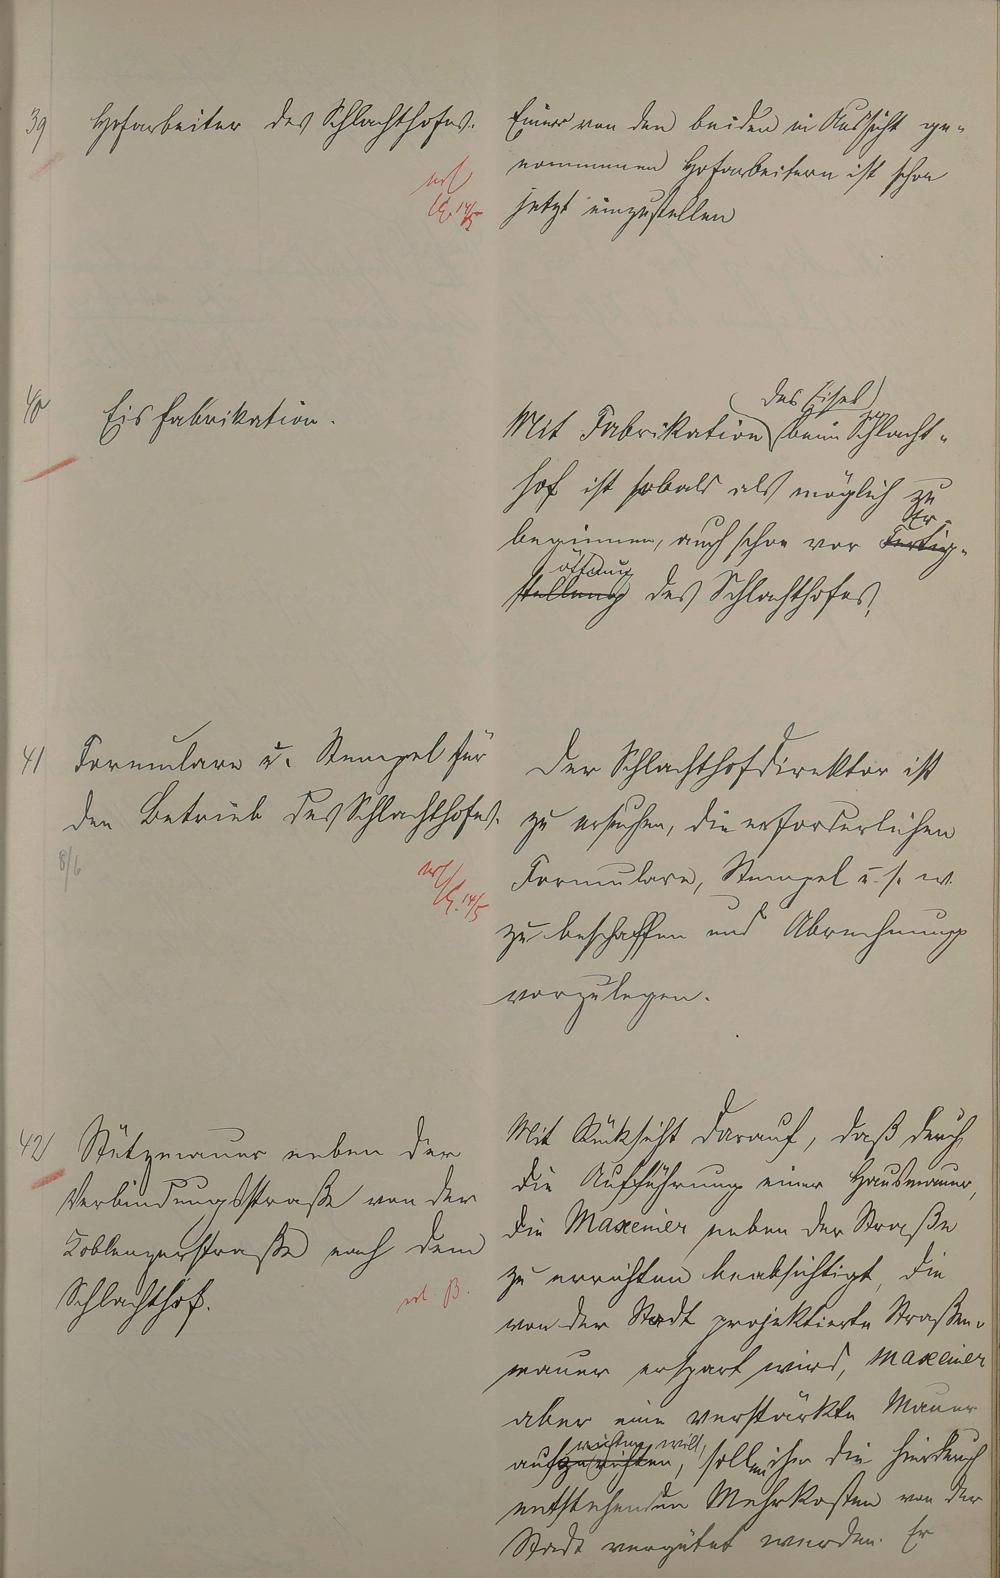 39
Hofarbeiter des Schlachthofes.
Einer von den beiden in Aussicht ge-
nommenen Hofarbeitern ist schon
jetzt einzustellen
14/5
40
Eisfabrikation.
des Eises
Mit Fabrikation beim Schlacht-
hof ist sobald als möglich zu
Er-
beginnen, auch schon vor Fertig-
öffnung
stellung des Schlachthofes,
41
Formulare u. Stempel für
den Betrieb des Schlachthofes.
8/6
14/5
Der Schlachthofdirektor ist
zu ersuchen, die erforderlichen
Formulare, Stempel u. s. w.
zu beschaffen und Abrechnung
vorzulegen.
42
Stützmauer neben der
Verbindungsstraße von der
Koblenzerstraße nach dem
Schlachthof.
erl. B.
Mit Rücksicht darauf, daß durch
die Aufführung einer Hausmauer,
die Maxeiner neben der Straße
zu errichten beabsichtigt, die
von der Stadt projektierte Straßen-
mauer erspart wird, Maxeiner
aber eine verstärkte Mauer
richten will,
aufzurichten, sollen ihm die hierdurch
entstehenden Mehrkosten von der
Stadt vergütet werden. Er